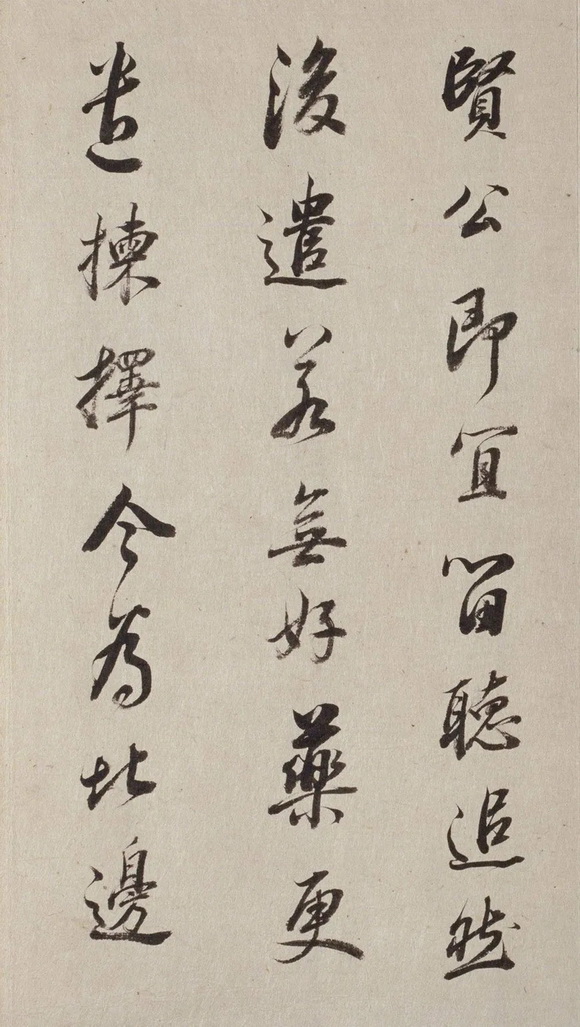 賢公即宜留聽追然
後遣若無好藥更
遣揀擇今為北邊